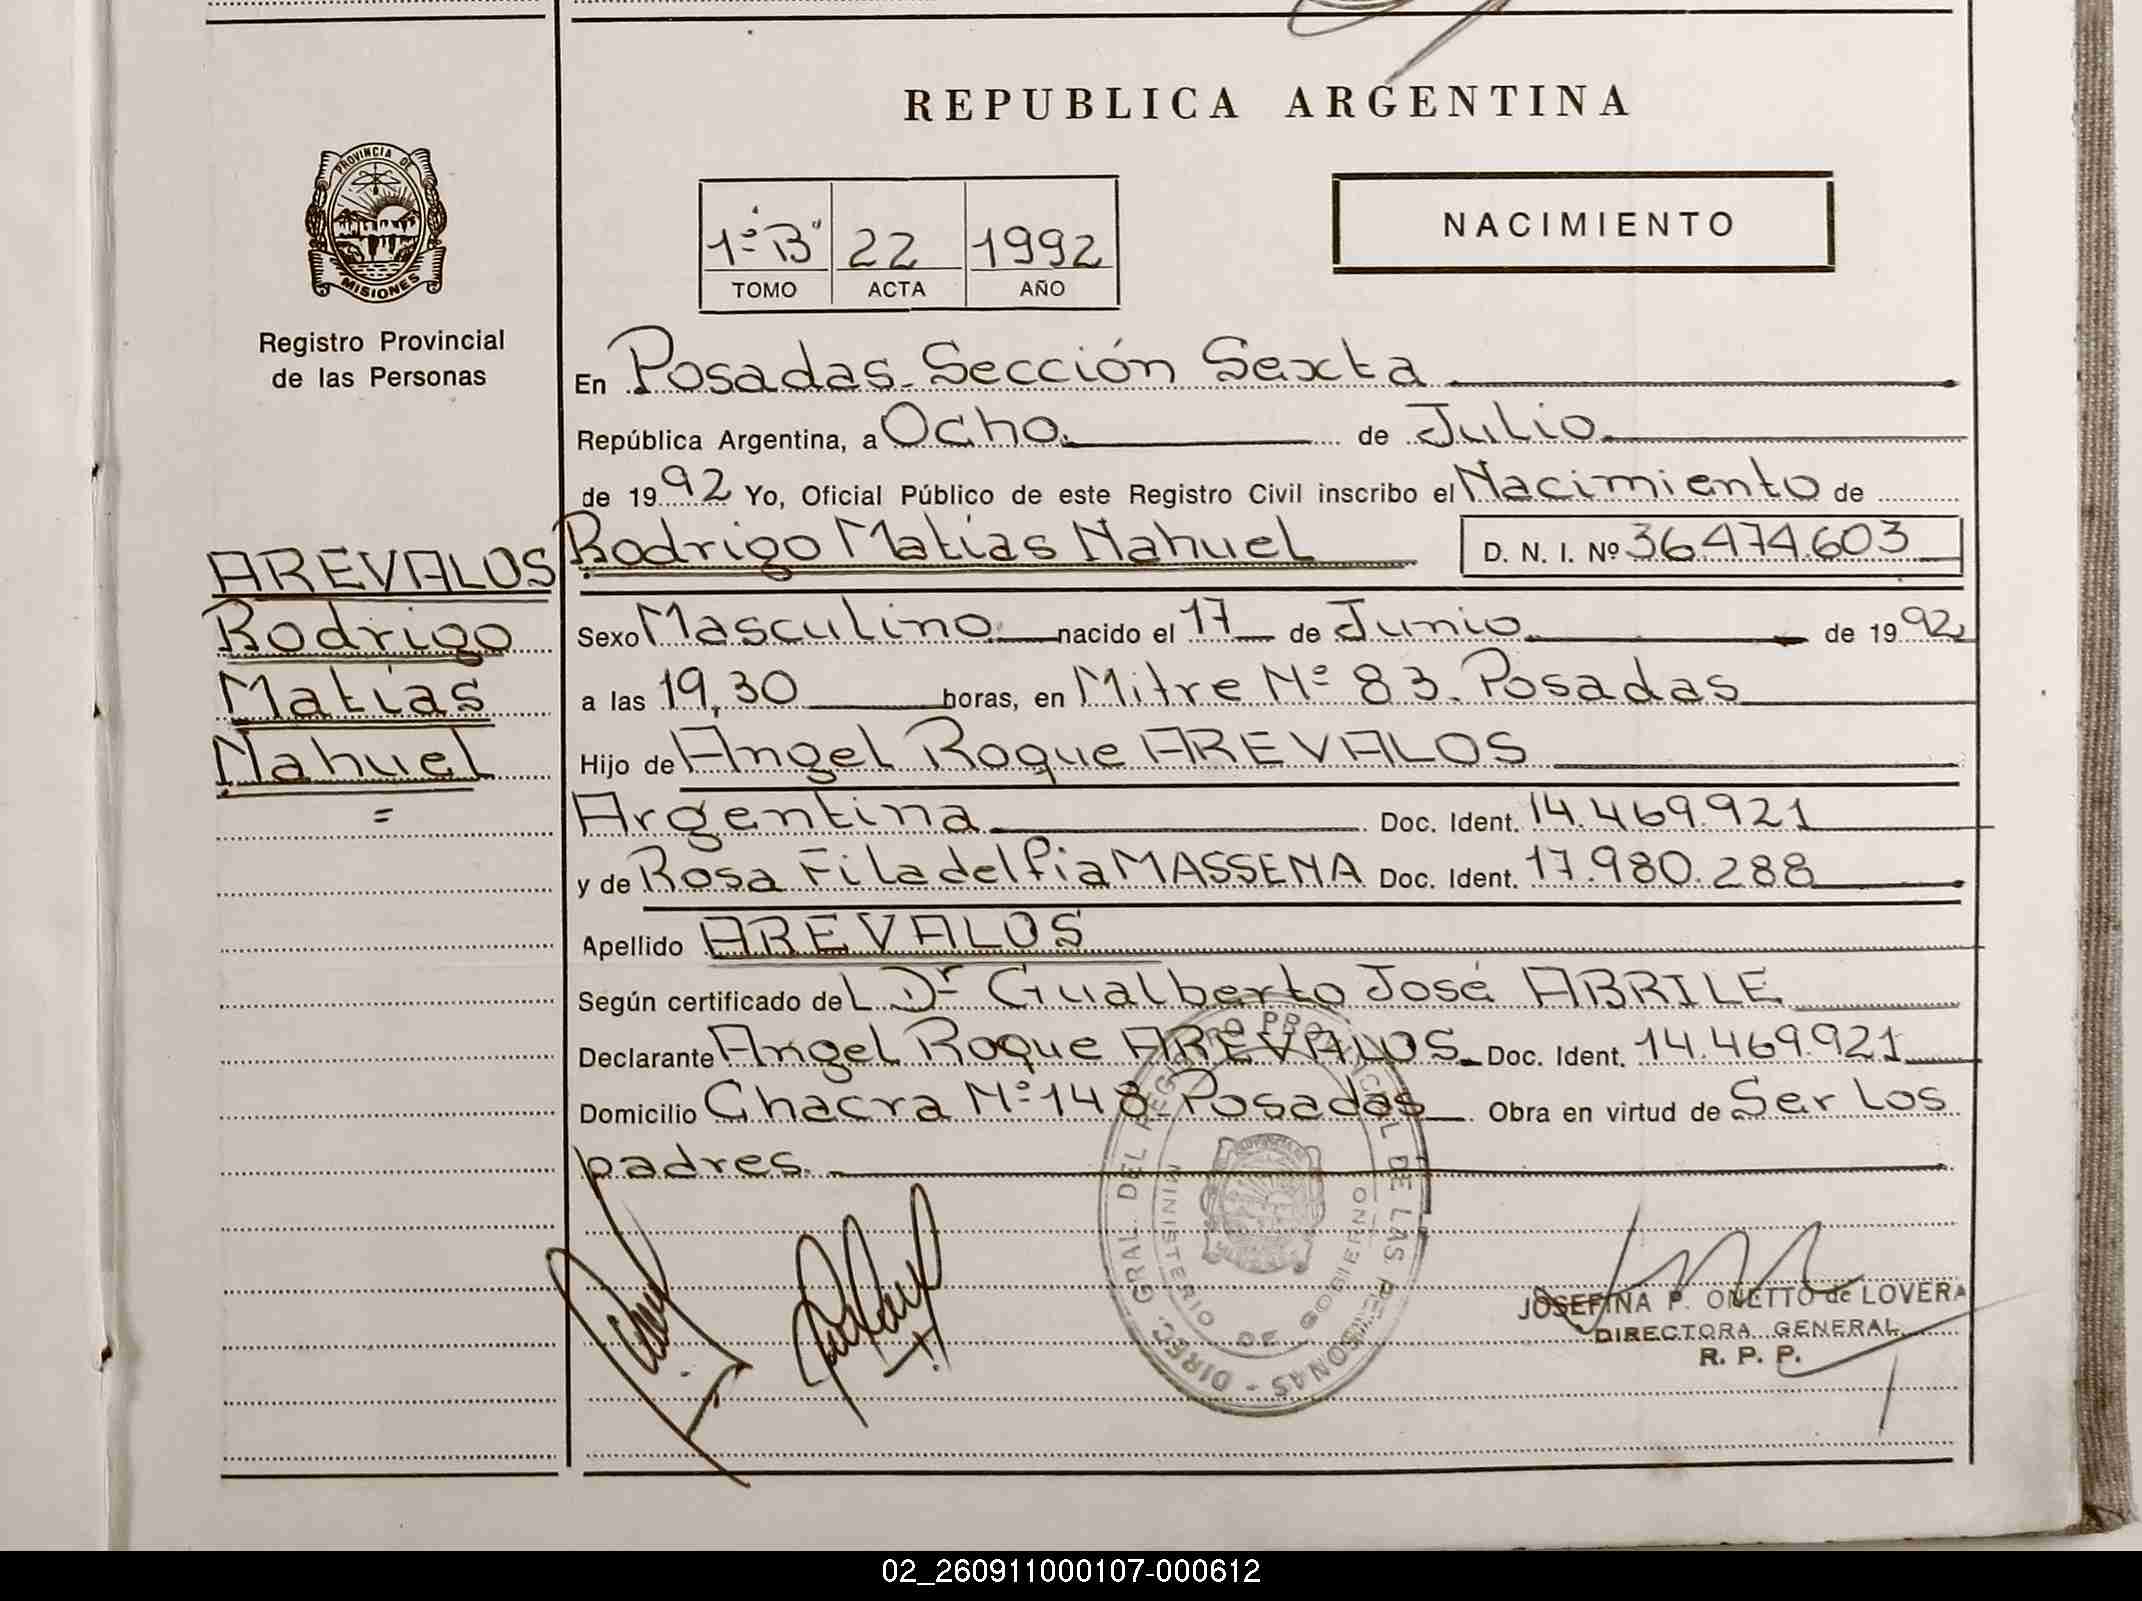 REPUBLICA ARGENTINA
PROVINCIA DE
MISIONES
Registro Provincial
de las Personas
1º "B" 22 1992
TOMO ACTA AÑO
NACIMIENTO
En Posadas. Sección Sexta
República Argentina, a Ocho. de Julio
de 1992 Yo, Oficial Público de este Registro Civil inscribo el Nacimiento de
Rodrigo Matías Nahuel D. N. I. Nº 36.474.603
AREVALOS
Rodrigo
Matías
Nahuel
=
Sexo Masculino nacido el 17 de Junio de 1992
a las 19,30 horas, en Mitre Nº 83. Posadas
Hijo de Angel Roque AREVALOS
Argentina Doc. Ident. 14.469.921
y de Rosa Filadelfia MASSENA Doc. Ident. 17.980.288
Apellido AREVALOS
Según certificado del Dr Gualberto José ABRILE
Declarante Angel Roque AREVALOS. Doc. Ident. 14.469.921
Domicilio Chacra Nº 148. Posadas Obra en virtud de Ser los
padres.
DIREC. GRAL. DEL REGISTRO PROVINCIAL DE LAS PERSONAS -
MINISTERIO DE GOBIERNO
JOSEFINA P. ONETTO de LOVERA
DIRECTORA GENERAL
R. P. P.
02_260911000107-000612